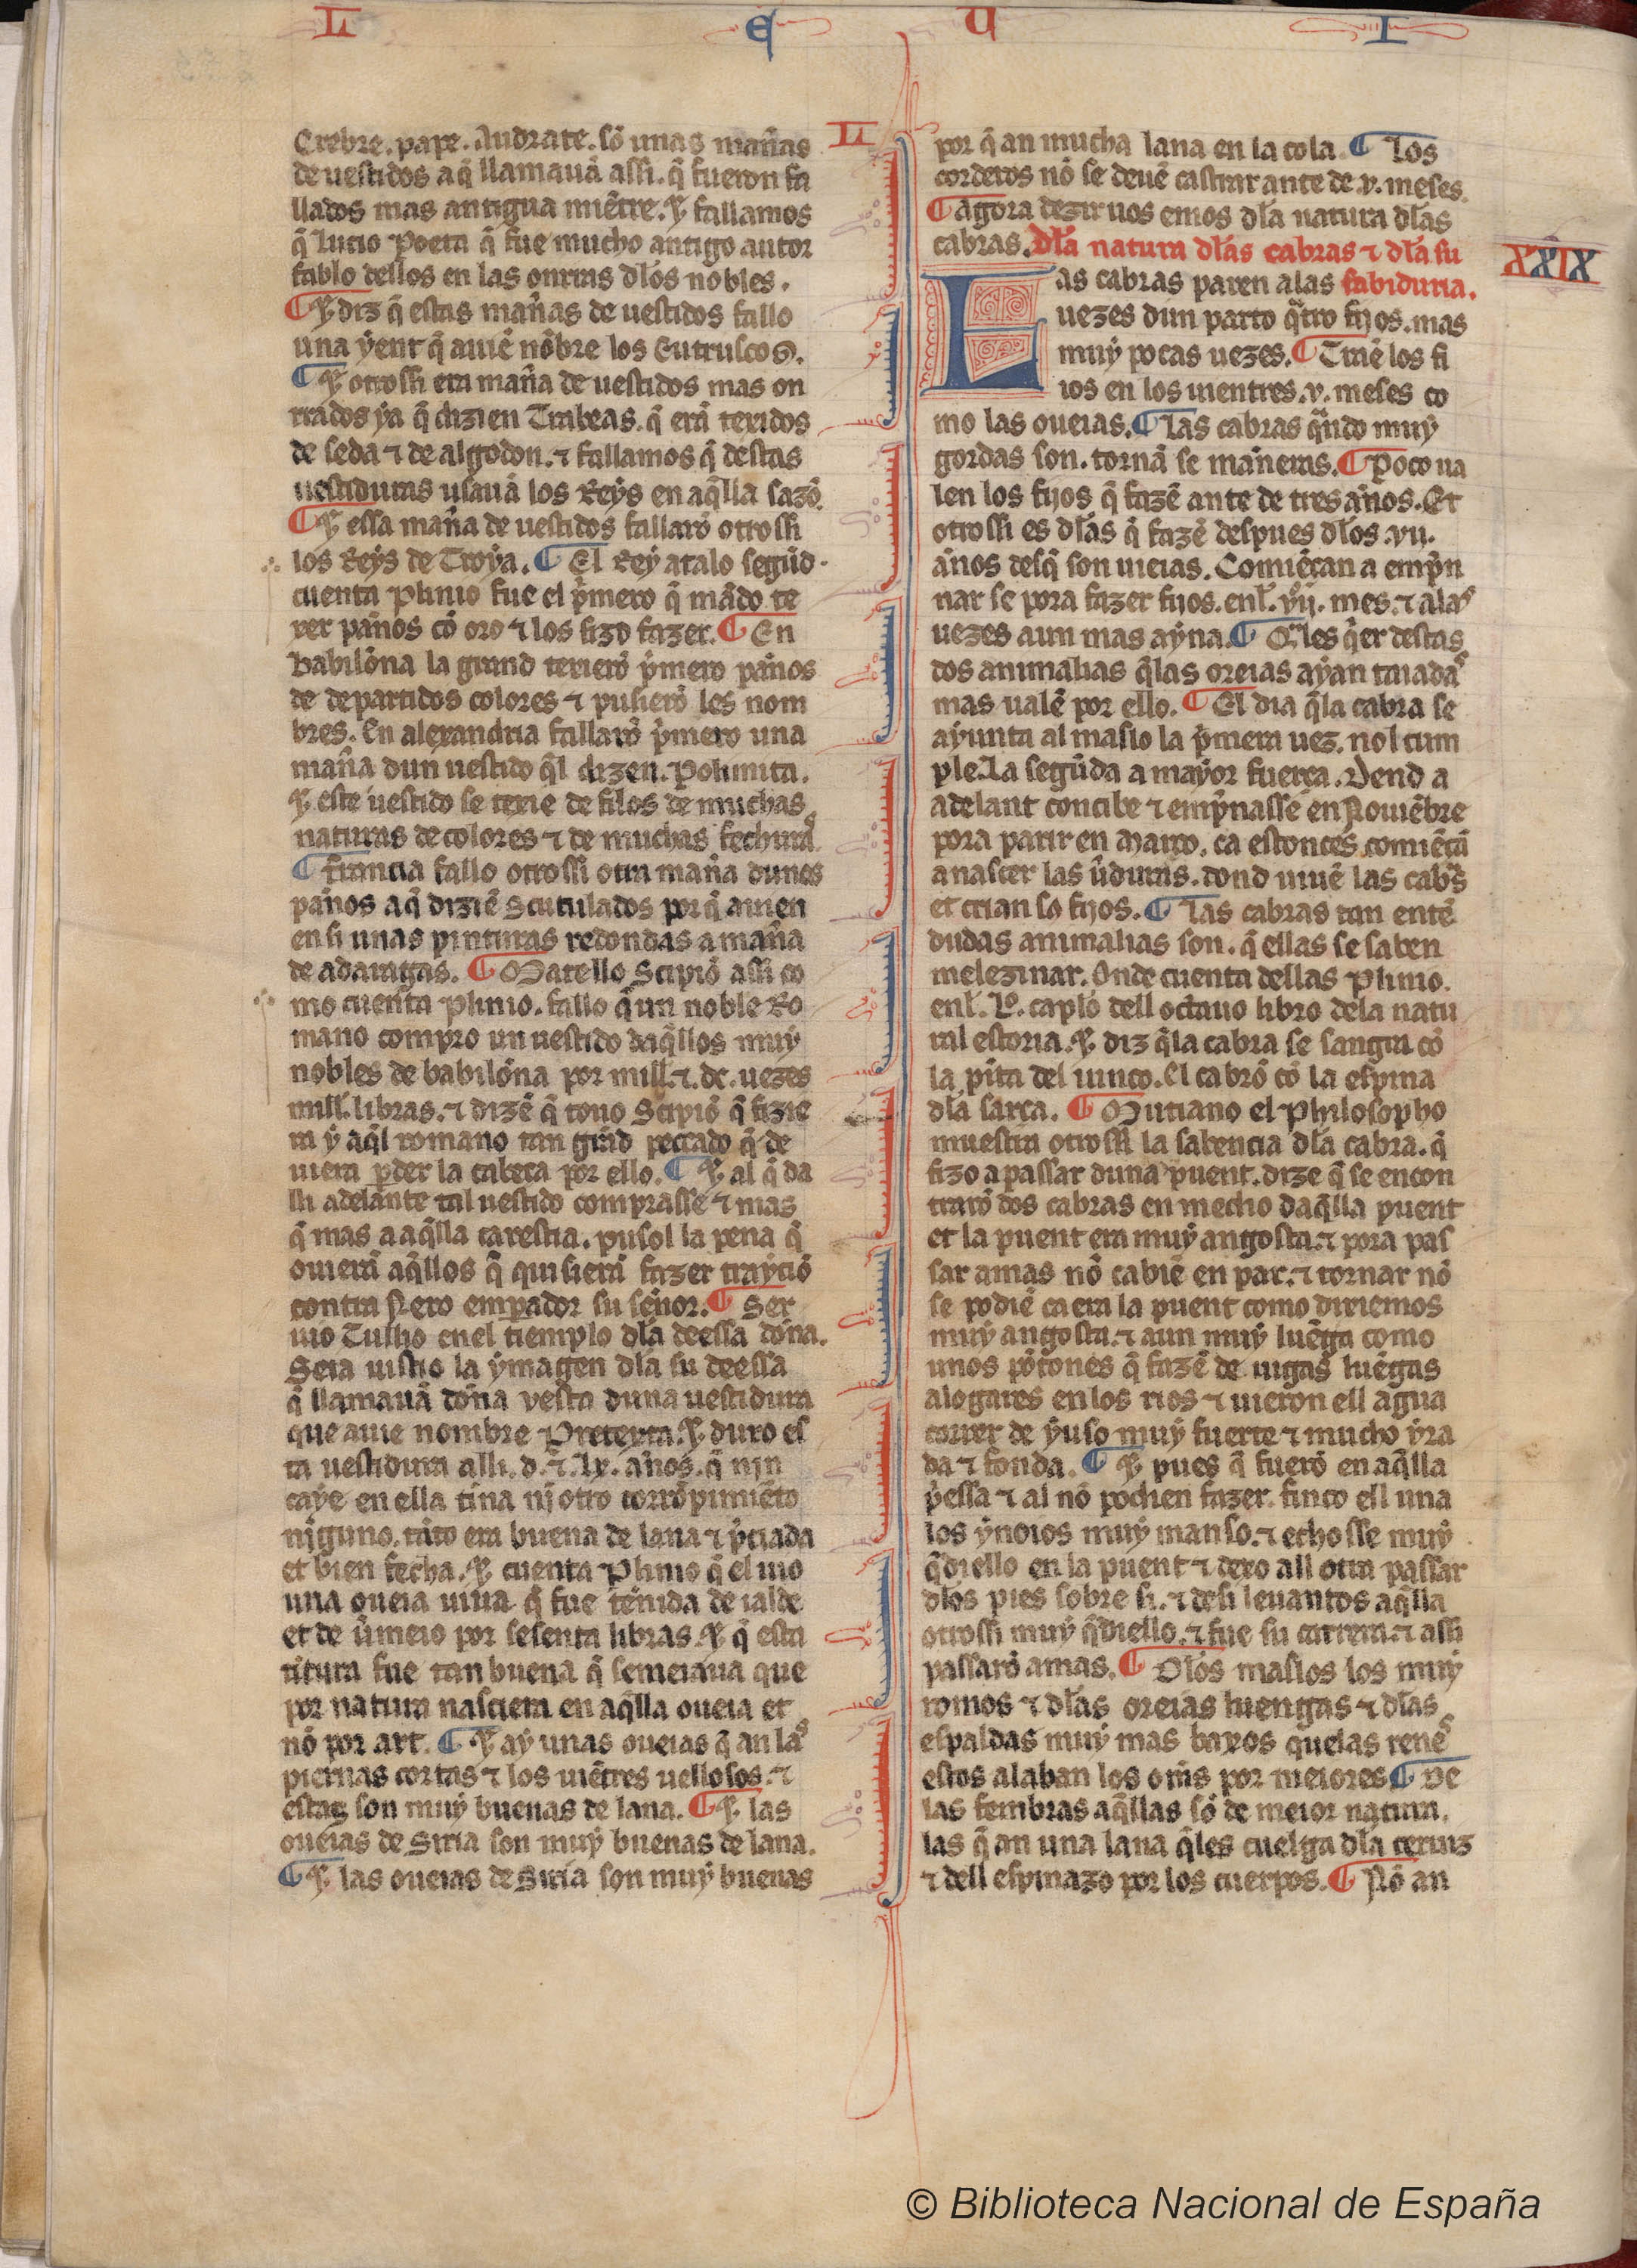 L E U I
Crebre. pape. Audrate. sō unas mañas
de uestidos a q̄ llamauā assi. q̄ fueron fa
llados mas antigua miētre. ⁊ fallamos
q̄ Lucio Poeta q̄ fue mucho antigo autor
fablo dellos en las onrras dłos nobles.
¶ ⁊ diz q̄ estas mañas de uestidos fallo
una yent q̄ auiē nōbre los Eutruscos.
¶ ⁊ otrossi era maña de uestidos mas on
rrados ya q̄ dizien Trabeas. q̄ erā texidos
de seda ⁊ de algodon. ⁊ fallamos q̄ destas
uestiduras usauā los Reys en aq̄lla sazō.
¶ ⁊ essa maña de uestidos fallarō otrossi
los Reys de Troya. ¶ El Rey atalo segūd
cuenta Plinio fue el p̄mero q̄ mādo te
xer paños cō oro ⁊ los fizo fazer. ¶ En
babilōna la grand texierō p̄mero paños
de departidos colores ⁊ pusierō les nom
bres. En alexandria fallarō p̄mero una
maña dun uestido q̄l dizen. Polimita.
⁊ este uestido se texie de filos de muchas
naturas de colores ⁊ de muchas fechuras
¶ francia fallo otrossi otra maña dunos
paños a q̄ diziē Scutulados por q̄ auien
en si unas pinturas redondas a maña
de adaragas. ¶ Matello Scipiō assi co
mo cuenta Plinio. fallo q̄ un noble Ro
mano compro un uestido daq̄llos muy
nobles de babilōna por mill. ⁊. dc. uezes
mill. libras. ⁊ dizē q̄ touo Scipiō q̄ fizie
ra y aq̄l romano tan grād peccado q̄ de
uiera p̄der la cabeça por ello. ¶ ⁊ al q̄ da
lli adelante tal uestido comprasse ⁊ mas
q̄ mas a aq̄lla carestia. pusol la pena q̄
ouierā aq̄llos q̄ quisierā fazer trayciō
contra Nero emp̄ador su señor. ¶ Ser
uio Tulho en el tiemplo dła deessa doña.
Seia uistio la ymagen dła su deessa
q̄ llamauā doña vesta duna uestidura
que auie nombre Pretexta. ⁊ duro es
ta uestidura alli. d. ⁊. lx. años. q̄ nin
caye en ella tiña nj otro corrōpimiēto
njguno. tāto era buena de lana ⁊ p̄ciada
et bien fecha. ⁊ cuenta Plinio q̄ el uio
una oueia uiua q̄ fue teñida de ialde
et de ūmeio por sesenta libras. ⁊ q̄ esta
titura fue tan buena q̄ semeiaua que
por natura nasciera en aq̄lla oueia et
nō por art. ¶ ⁊ ay unas oueias q̄ an las
piernas cortas ⁊ los uiētres uellosos. ⁊
estas son muy buenas de lana. ¶ ⁊ las
oueias de Siria son muy buenas de lana.
¶ ⁊ las oueias de Siria son muy buenas
L
por q̄ an mucha lana en la cola. ¶ Los
corderos nō se deuē castrar ante de .v. meses.
¶ agora dezir uos emos dła natura dłas
cabras. Dła natura dłas cabras ⁊ dła su
XXIX
Las cabras paren a las sabiduria.
uezes dun parto q̄tro fijos. mas
muy pocas uezes. ¶ Traē los fi
ios en los uientres .v. meses co
mo las oueias. ¶ Las cabras q̄ndo muy
gordas son. tornā se mañeras. ¶ Poco ua
len los fijos q̄ fazē ante de tres años. Et
otrossi es dłas q̄ fazē despues dłos .vii.
años desq̄ son uieias. Comiēçan a emp̄n
nar se pora fazer fijos. enl. vij. mes. ⁊ a las
uezes aun mas ayna. ¶ Q̄les q̄er destas
dos animalias q̄ las oreias ayan taiadas
mas ualē por ello. ¶ El dia q̄ la cabra se
ayunta al maslo la p̄mera uez. nol cum
ple. La segūda a mayor fuerça. Dend a
adelant concibe ⁊ emp̄nasse en Nouiēbre
pora parir en Março. ca estonces comiēçā
a nascer las ūduras. dond uiuē las cabs̄
et crian so fijos. ¶ Las cabras tan entē
dudas animalias son. q̄ ellas se saben
melezinar. Onde cuenta dellas Plinio.
enl. Lº. capl̄o dell octauo libro dela natu
ral estoria. ⁊ diz q̄ la cabra se sangra cō
la pūta del iunco. El cabrō cō la espina
dła sarça. ¶ Mutiano el Philosopho
muestra otrossi la sabencia dła cabra. q̄
fizo a passar duna puent. dize q̄ se encon
trarō dos cabras en mecho daq̄lla puent
et la puent era muy angosta. ⁊ pora pas
sar amas nō cabiē en par. ⁊ tornar nō
se podiē ca era la puent como dixiemos
muy angosta. ⁊ aun muy luēga como
unos pōtones q̄ fazē de uigas luēgas
a logares en los rios ⁊ uieron ell agua
correr de yuso muy fuerte ⁊ mucho yra
da ⁊ fonda. ¶ ⁊ pues q̄ fuerō en aq̄lla
p̄essa ⁊ al nō podien fazer. finco ell una
los ynoios muy manso. ⁊ echosse muy
q̄diello en la puent ⁊ dexo all otra passar
dłos pies sobre si. ⁊ desi leuantos aq̄lla
otrossi muy q̄diello. ⁊ fue su carrera. ⁊ assi
passarō amas. ¶ Dłos maslos los muy
romos ⁊ dłas oreias luengas ⁊ dłas
espaldas muy mas baxos que las renes
estos alaban los om̄s por meiores ¶ De
las fembras aq̄llas sō de meior natura.
las q̄ an una lana q̄les cuelga dła ceruiz
⁊ dell espinazo por los cuerpos. ¶ Nō an
© Biblioteca Nacional de España